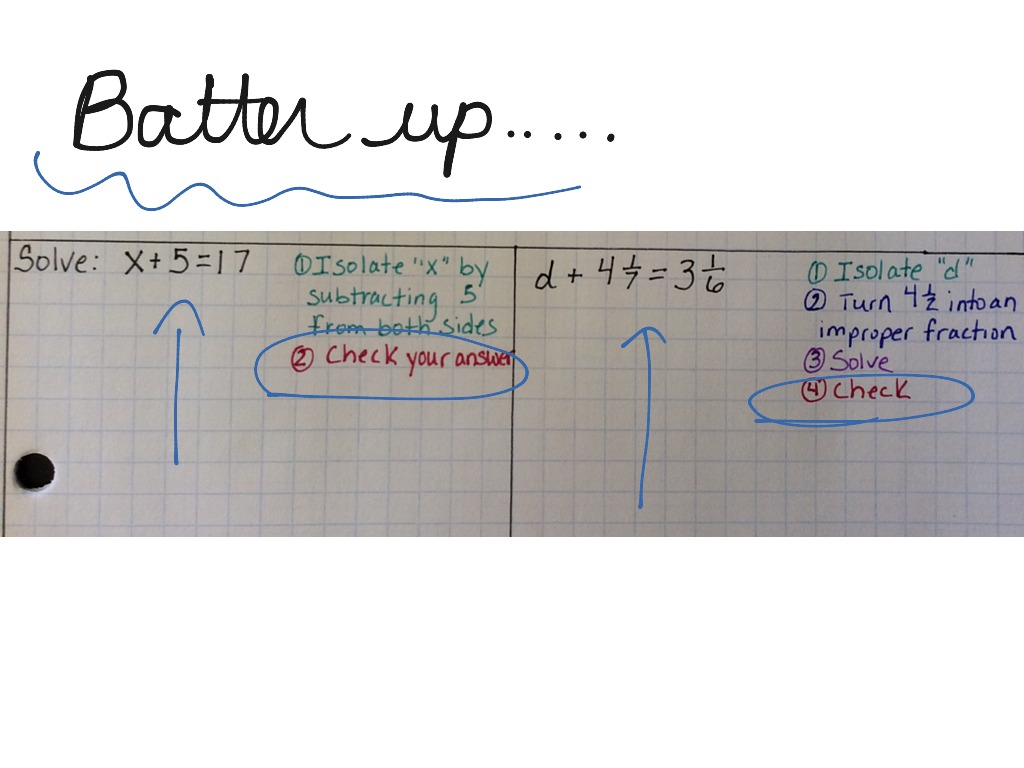 Batter up.....
Solve: x+5=17
① Isolate "x" by
subtracting 5
from both sides
② Check your answer
d + 4 1/7 = 3 1/6
① Isolate "d"
② Turn 4 1/2 into an
improper fraction
③ Solve
④ Check